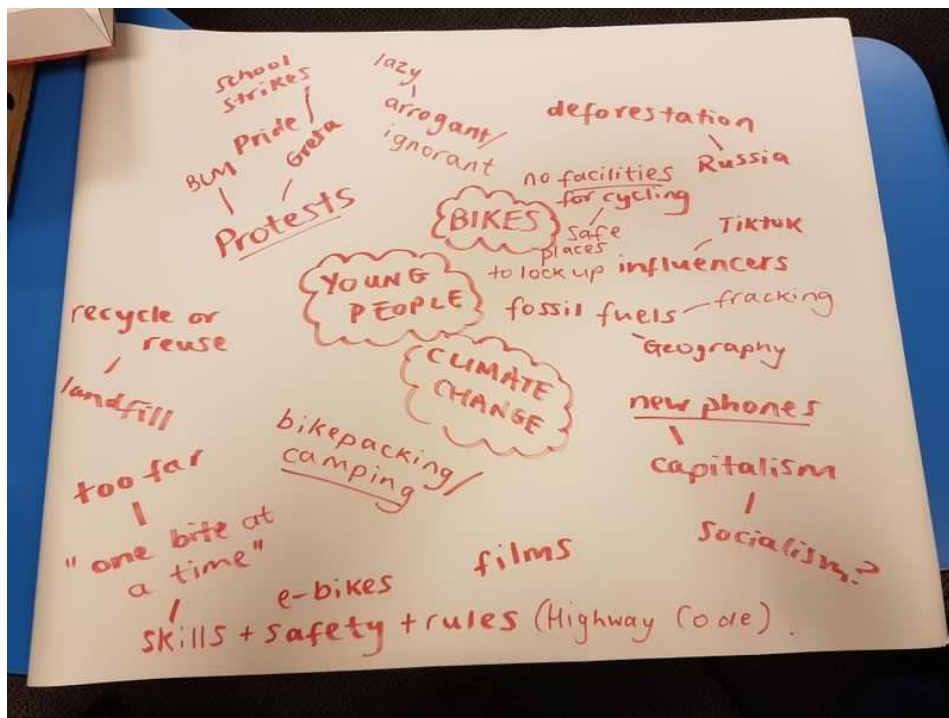 school
strikes
BLM Pride Greta
Protests
lazy
arrogant/
ignorant
deforestation
Russia
no facilities
for cycling
safe
places
to lock up
BIKES
Tiktok
influencers
YOUNG
PEOPLE
fossil fuels
fracking
Geography
CLIMATE
CHANGE
recycle or
reuse
landfill
new phones
capitalism
Socialism?
bikepacking/
camping
too far
"one bite at
a time"
films
e-bikes
skills + safety + rules (Highway Code).